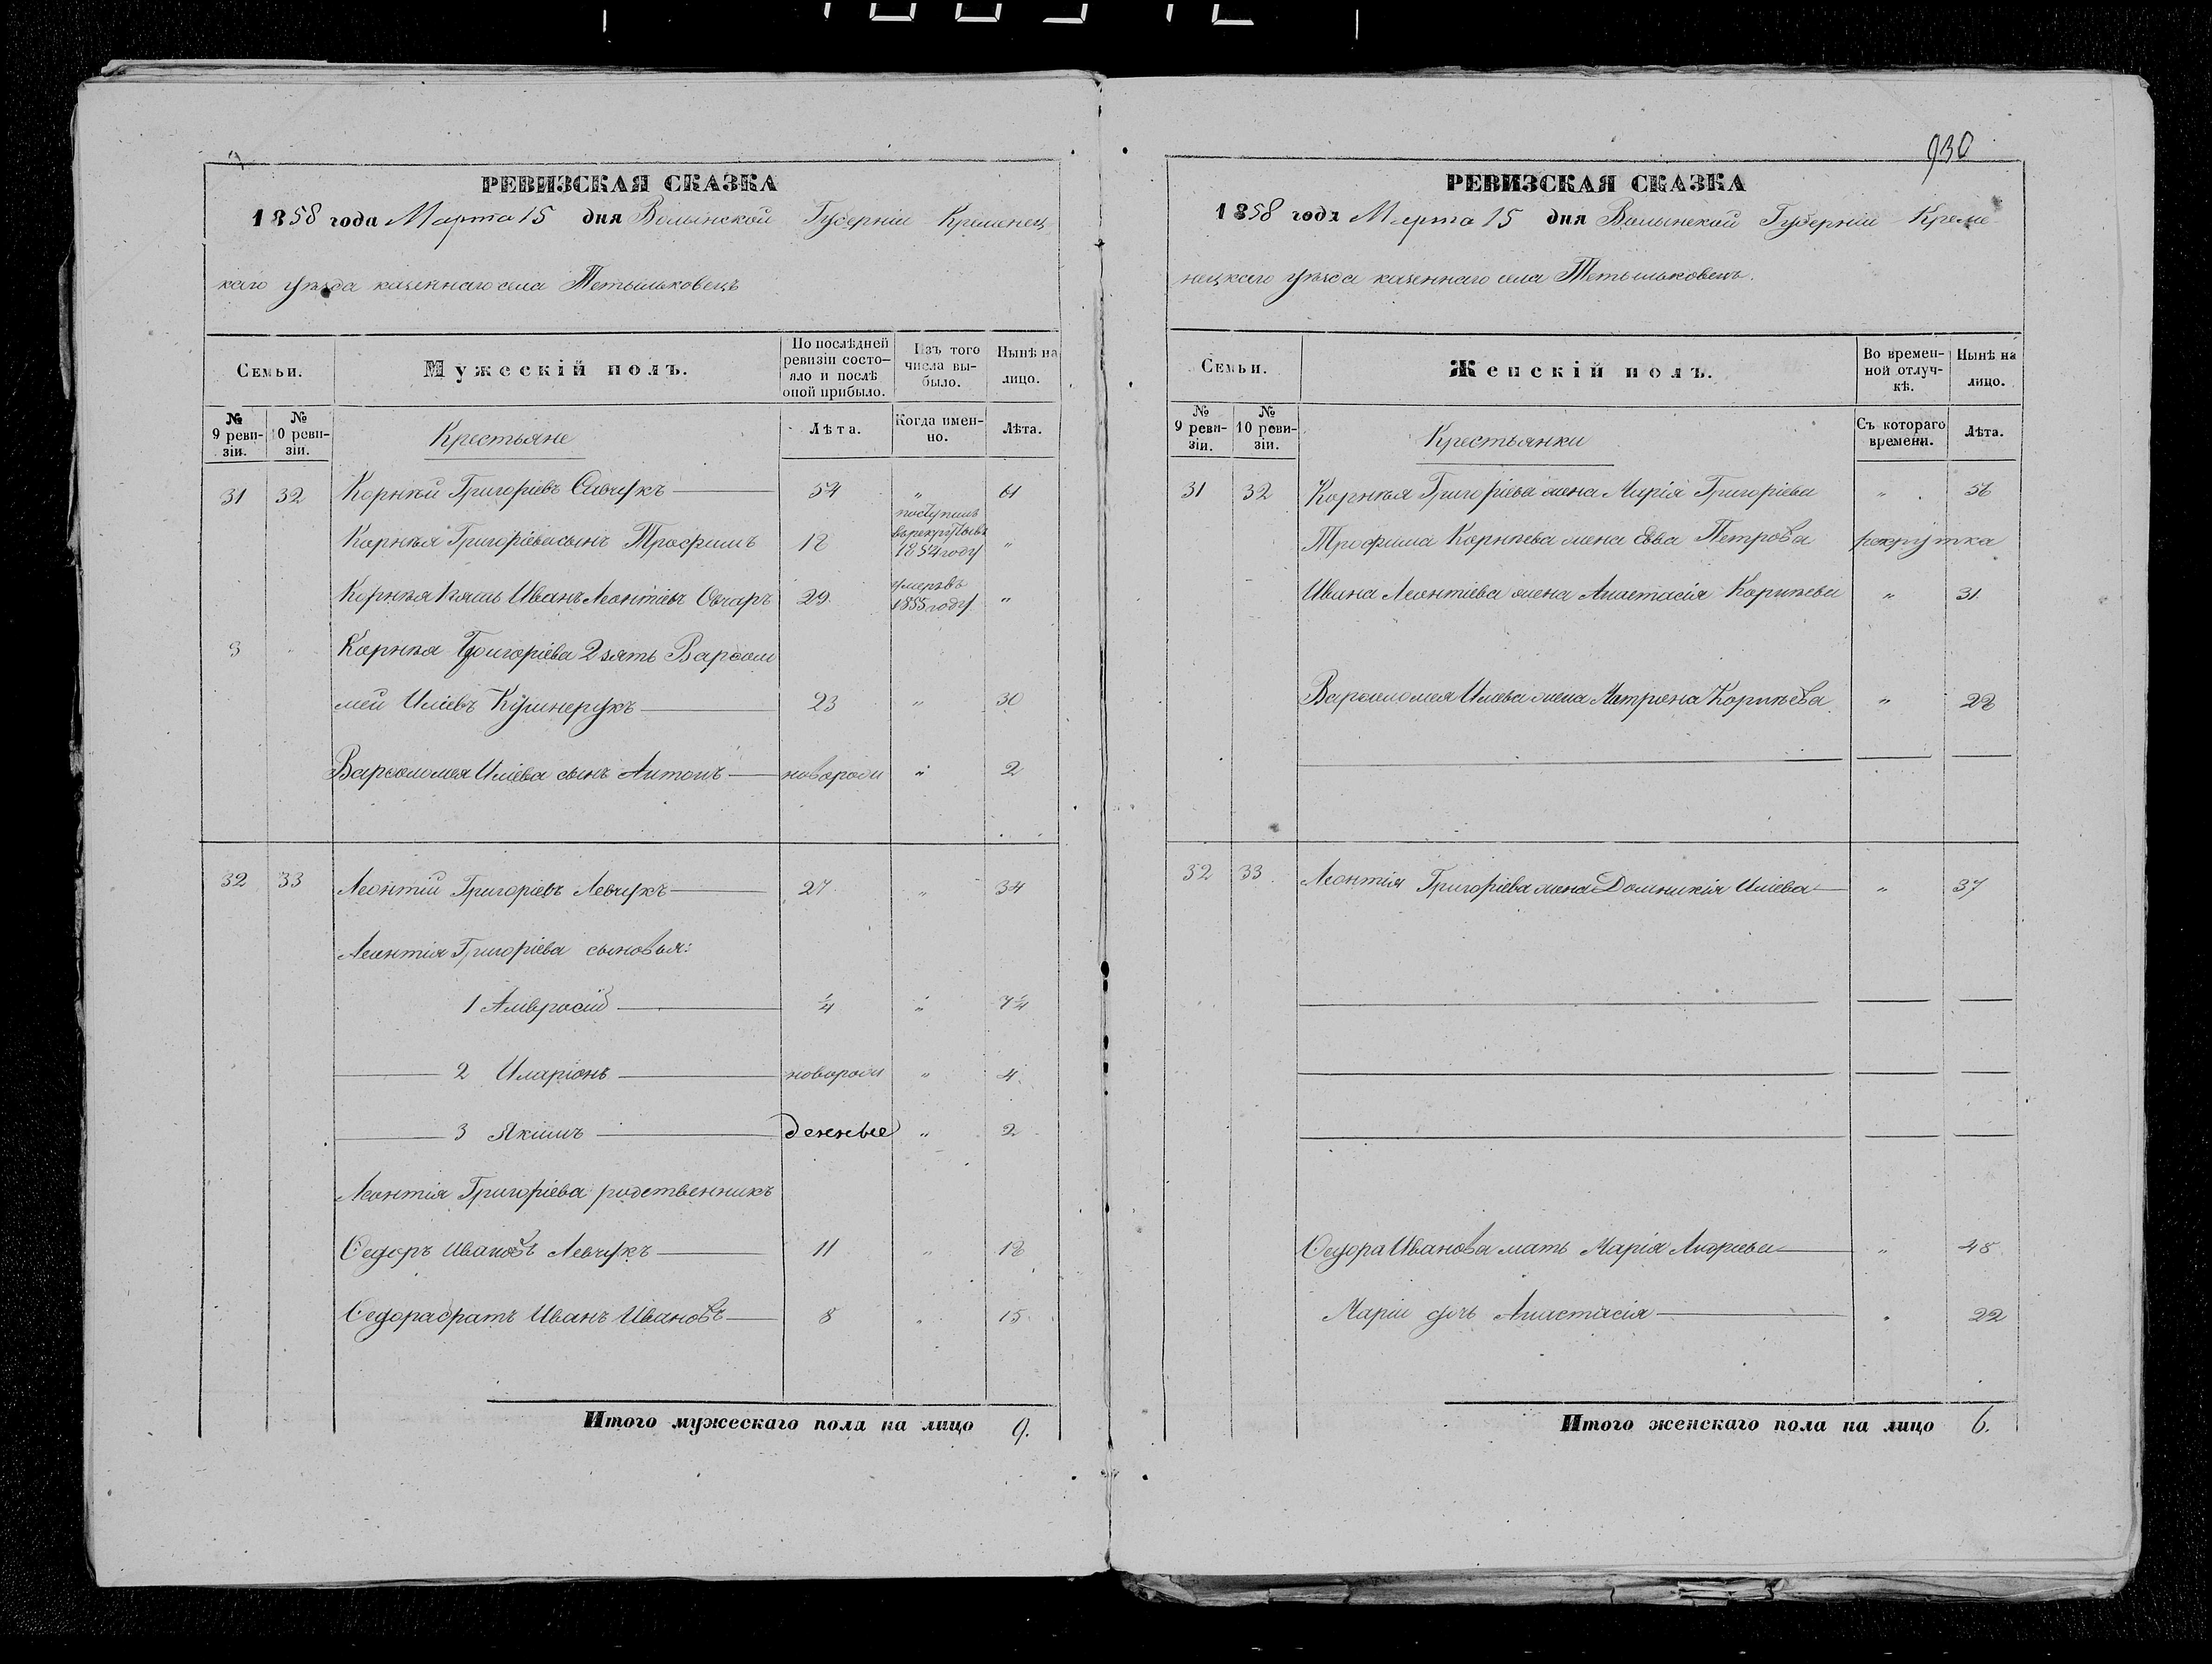 РЕВИЗСКАЯ СКАЗКА
1858 года Марта 15 дня Волынской Губерніи Кременец
каго уѣзда казеннаго села Тетыльковецъ
Семьи.
Мужескій полъ.
По послѣдней ревизіи состояло и послѣ оной прибыло.
Изъ того числа выбыло.
Нынѣ на лицо.
№ 9 ревизіи.
№ 10 ревизіи.
Крестьяне
Лѣта.
Когда именно.
Лѣта.
31 32 Корнѣй Григорієвъ 54 " 61
Корнѣя Григорієва сынъ Трофимъ 12 поступилъ въ рекруты въ 1854 году "
Корнѣя зять Иванъ Леонтіевъ Овчаръ 29 умеръ въ 1855 году "
3 Корнѣя Григоріева 2 зять Варфоло
мей Иліевъ Кушнерукъ 23 " 30
Варфоломея Иліева сынъ Антонъ новорож " 2
32 33 Леонтій Григоріевъ Левчукъ 27 " 34
Леонтія Григоріева сыновья:
1 Амвросій ¼ " 7¼
2 Иларіонъ новорож " 4
3 Якимъ денные " 2
Леонтія Григоріева родственникъ
Ѳедоръ Ивановъ Левчукъ 11 " 18
Ѳедора братъ Иванъ Ивановъ 8 " 15
Итого мужескаго пола на лицо 9.
930
РЕВИЗСКАЯ СКАЗКА
1858 года Марта 15 дня Волынской Губерніи Креме
нецкаго уѣзда казеннаго села Тетыльковецъ.
Семьи.
Женскій полъ.
Во временной отлучкѣ.
Нынѣ на лицо.
№ 9 ревизіи.
№ 10 ревизіи.
Крестьянки
Съ котораго времени.
Лѣта.
31 32 Корнѣя Григоріева жена Марія Григоріева " 56
Трофима Корнѣева жена Евва Петрова рекрутка
Ивана Леонтіева жена Анастасія Корнѣева " 31
Варфоломея Иліева жена Матрона Корнѣева " 28
32 33 Леонтія Григоріева жена Домникія Иліева " 37
Ѳедора Иванова мать Марія Андріева " 48
Маріи дочь Анастасія " 22
Итого женскаго пола на лицо 6.